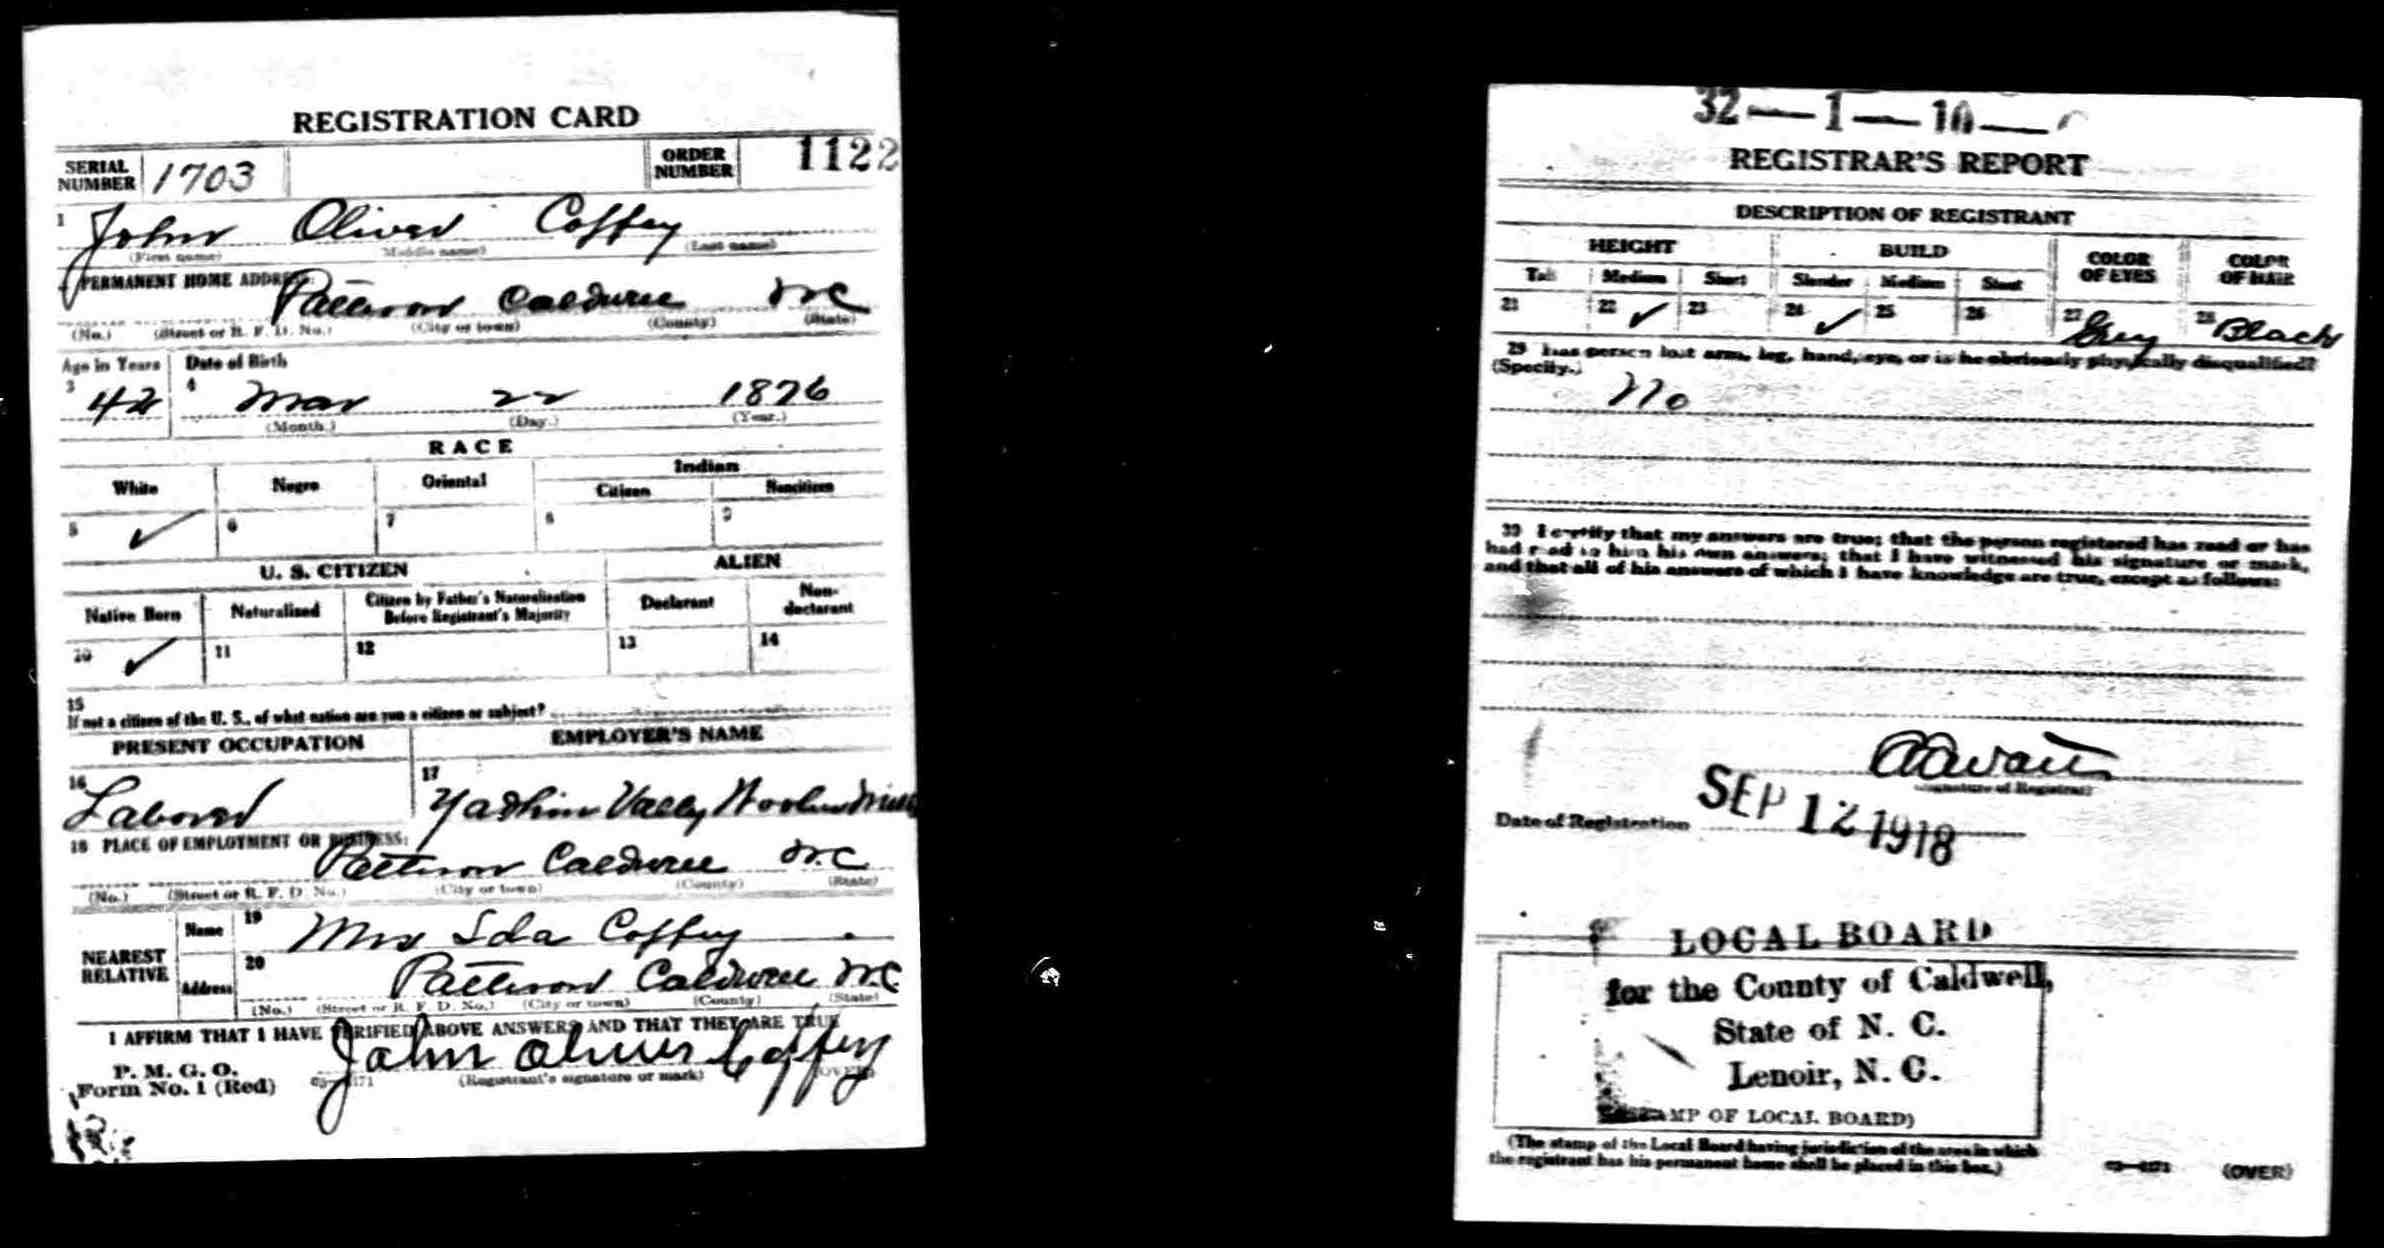 REGISTRATION CARD
SERIAL NUMBER 1703 ORDER NUMBER 1122
1 John Oliver Coffey
(First name) (Middle name) (Last name)
PERMANENT HOME ADDRESS:
Patterson Caldwell N.C
(No.) (Street or R. F. D. No.) (City or town) (County) (State)
Age in Years Date of Birth
3 42 4 Mar 22 1876
(Month.) (Day.) (Year.)
RACE
White Negro Oriental Indian
Citizen Noncitizen
5 ✓ 6 7 8 9
U. S. CITIZEN ALIEN
Native Born Naturalized Citizen by Father's Naturalization Before Registrant's Majority Declarant Non-declarant
10 ✓ 11 12 13 14
15
If not a citizen of the U. S., of what nation are you a citizen or subject?
PRESENT OCCUPATION EMPLOYER'S NAME
16 Laborer 17 Yadkin Valley Woolen Mill
18 PLACE OF EMPLOYMENT OR BUSINESS:
Patterson Caldwell N.C.
(No.) (Street or R. F. D. No.) (City or town) (County) (State)
NEAREST RELATIVE Name 19 Mrs Ida Coffey
Address 20 Patterson Caldwell N.C.
(No.) (Street or R. F. D. No.) (City or town) (County) (State)
I AFFIRM THAT I HAVE VERIFIED ABOVE ANSWERS AND THAT THEY ARE TRUE
P. M. G. O.
Form No. 1 (Red) John Oliver Coffey
(Registrant's signature or mark) (OVER)
32—1—10—
REGISTRAR'S REPORT
DESCRIPTION OF REGISTRANT
HEIGHT BUILD COLOR OF EYES COLOR OF HAIR
Tall Medium Short Slender Medium Stout
21 22 ✓ 23 24 ✓ 25 26 27 Grey 28 Black
29 Has person lost arm, leg, hand, eye, or is he obviously physically disqualified?
(Specify.) No
30 I certify that my answers are true; that the person registered has read or has
had read to him his own answers; that I have witnessed his signature or mark,
and that all of his answers of which I have knowledge are true, except as follows:
(Signature of Registrar)
Date of Registration SEP 12 1918
LOCAL BOARD
for the County of Caldwell,
State of N. C.
Lenoir, N. C.
(STAMP OF LOCAL BOARD)
(The stamp of the Local Board having jurisdiction of the area in which
the registrant has his permanent home shall be placed in this box.)
(OVER)